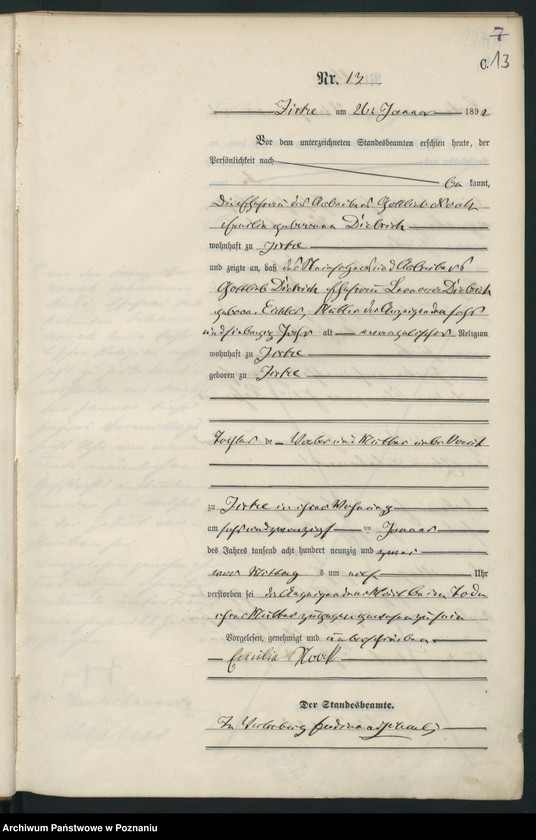 7
C. 13
Nr. 13
Zirke am 26. Januar 1892
Vor dem unterzeichneten Standesbeamten erschien heute, der
Persönlichkeit nach
be kannt,
die Ehefrau des Arbeiters Gottlieb
Emilie geborene Dietrich
wohnhaft zu Zirke
und zeigte an, daß des und Arbeiters
Gottlieb Dietrich Ehefrau Dietrich
geborne Mutter der Anzeigenden sechs
undsiebenzig Jahr alt evangelischer Religion
wohnhaft zu Zirke
geboren zu Zirke
Tochter de Vater und Mutter unbekannt
zu Zirke in ihrer Wohnung
am sechsundzwanzigsten Januar
des Jahres tausend acht hundert neunzig und zwei
vor Mittag s um Uhr
verstorben sei die Anzeigende bei dem Tode
ihrer Mutter zugegen gewesen zu sein
Vorgelesen, genehmigt und unterschrieben.
Emilie
Der Standesbeamte.
In Vertretung
Archiwum Państwowe w Poznaniu